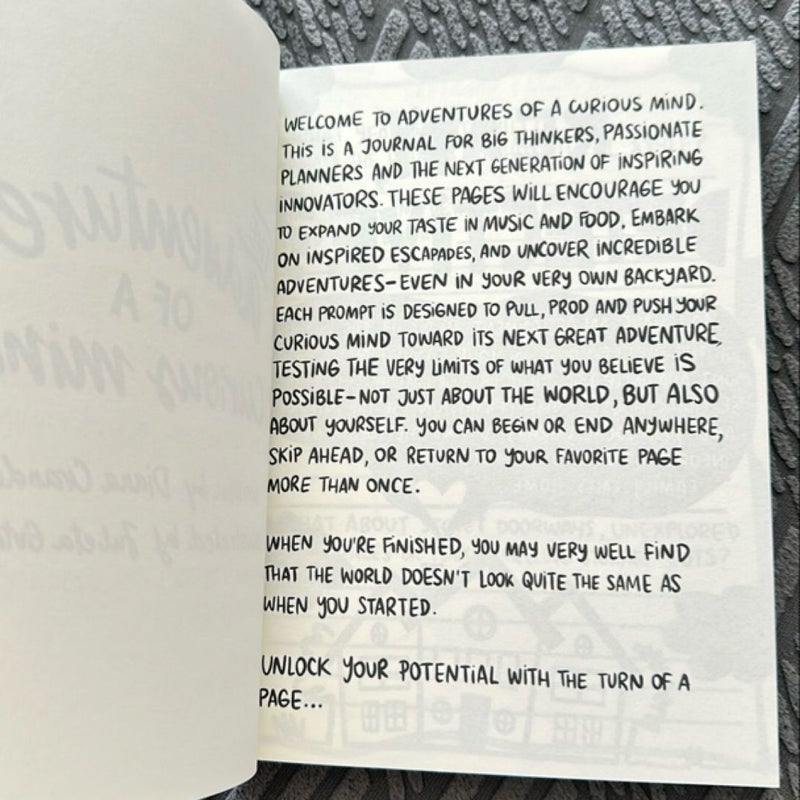 WELCOME TO ADVENTURES OF A CURIOUS MIND.
THIS IS A JOURNAL FOR BIG THINKERS, PASSIONATE
PLANNERS AND THE NEXT GENERATION OF INSPIRING
INNOVATORS. THESE PAGES WILL ENCOURAGE YOU
TO EXPAND YOUR TASTE IN MUSIC AND FOOD, EMBARK
ON INSPIRED ESCAPADES, AND UNCOVER INCREDIBLE
ADVENTURES—EVEN IN YOUR VERY OWN BACKYARD.
EACH PROMPT IS DESIGNED TO PULL, PROD AND PUSH YOUR
CURIOUS MIND TOWARD ITS NEXT GREAT ADVENTURE,
TESTING THE VERY LIMITS OF WHAT YOU BELIEVE IS
POSSIBLE—NOT JUST ABOUT THE WORLD, BUT ALSO
ABOUT YOURSELF. YOU CAN BEGIN OR END ANYWHERE,
SKIP AHEAD, OR RETURN TO YOUR FAVORITE PAGE
MORE THAN ONCE.
WHEN YOU'RE FINISHED, YOU MAY VERY WELL FIND
THAT THE WORLD DOESN'T LOOK QUITE THE SAME AS
WHEN YOU STARTED.
UNLOCK YOUR POTENTIAL WITH THE TURN OF A
PAGE...